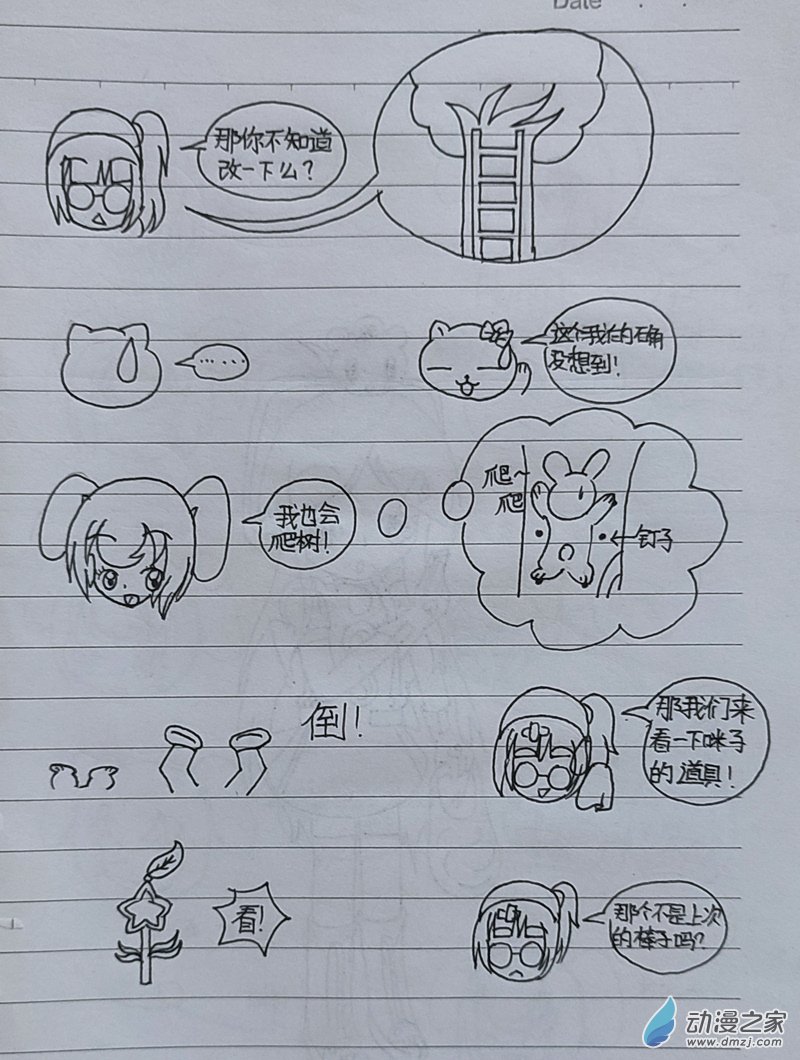 Date
那你不知道
改一下么？
……
这个我们的确
没想到！
我也会
爬树！
爬~
爬
钉子
倒！
那我们来
看一下咪子
的道具！
看！
那个不是上次
的棒子吗？
动漫之家
www.dmzj.com